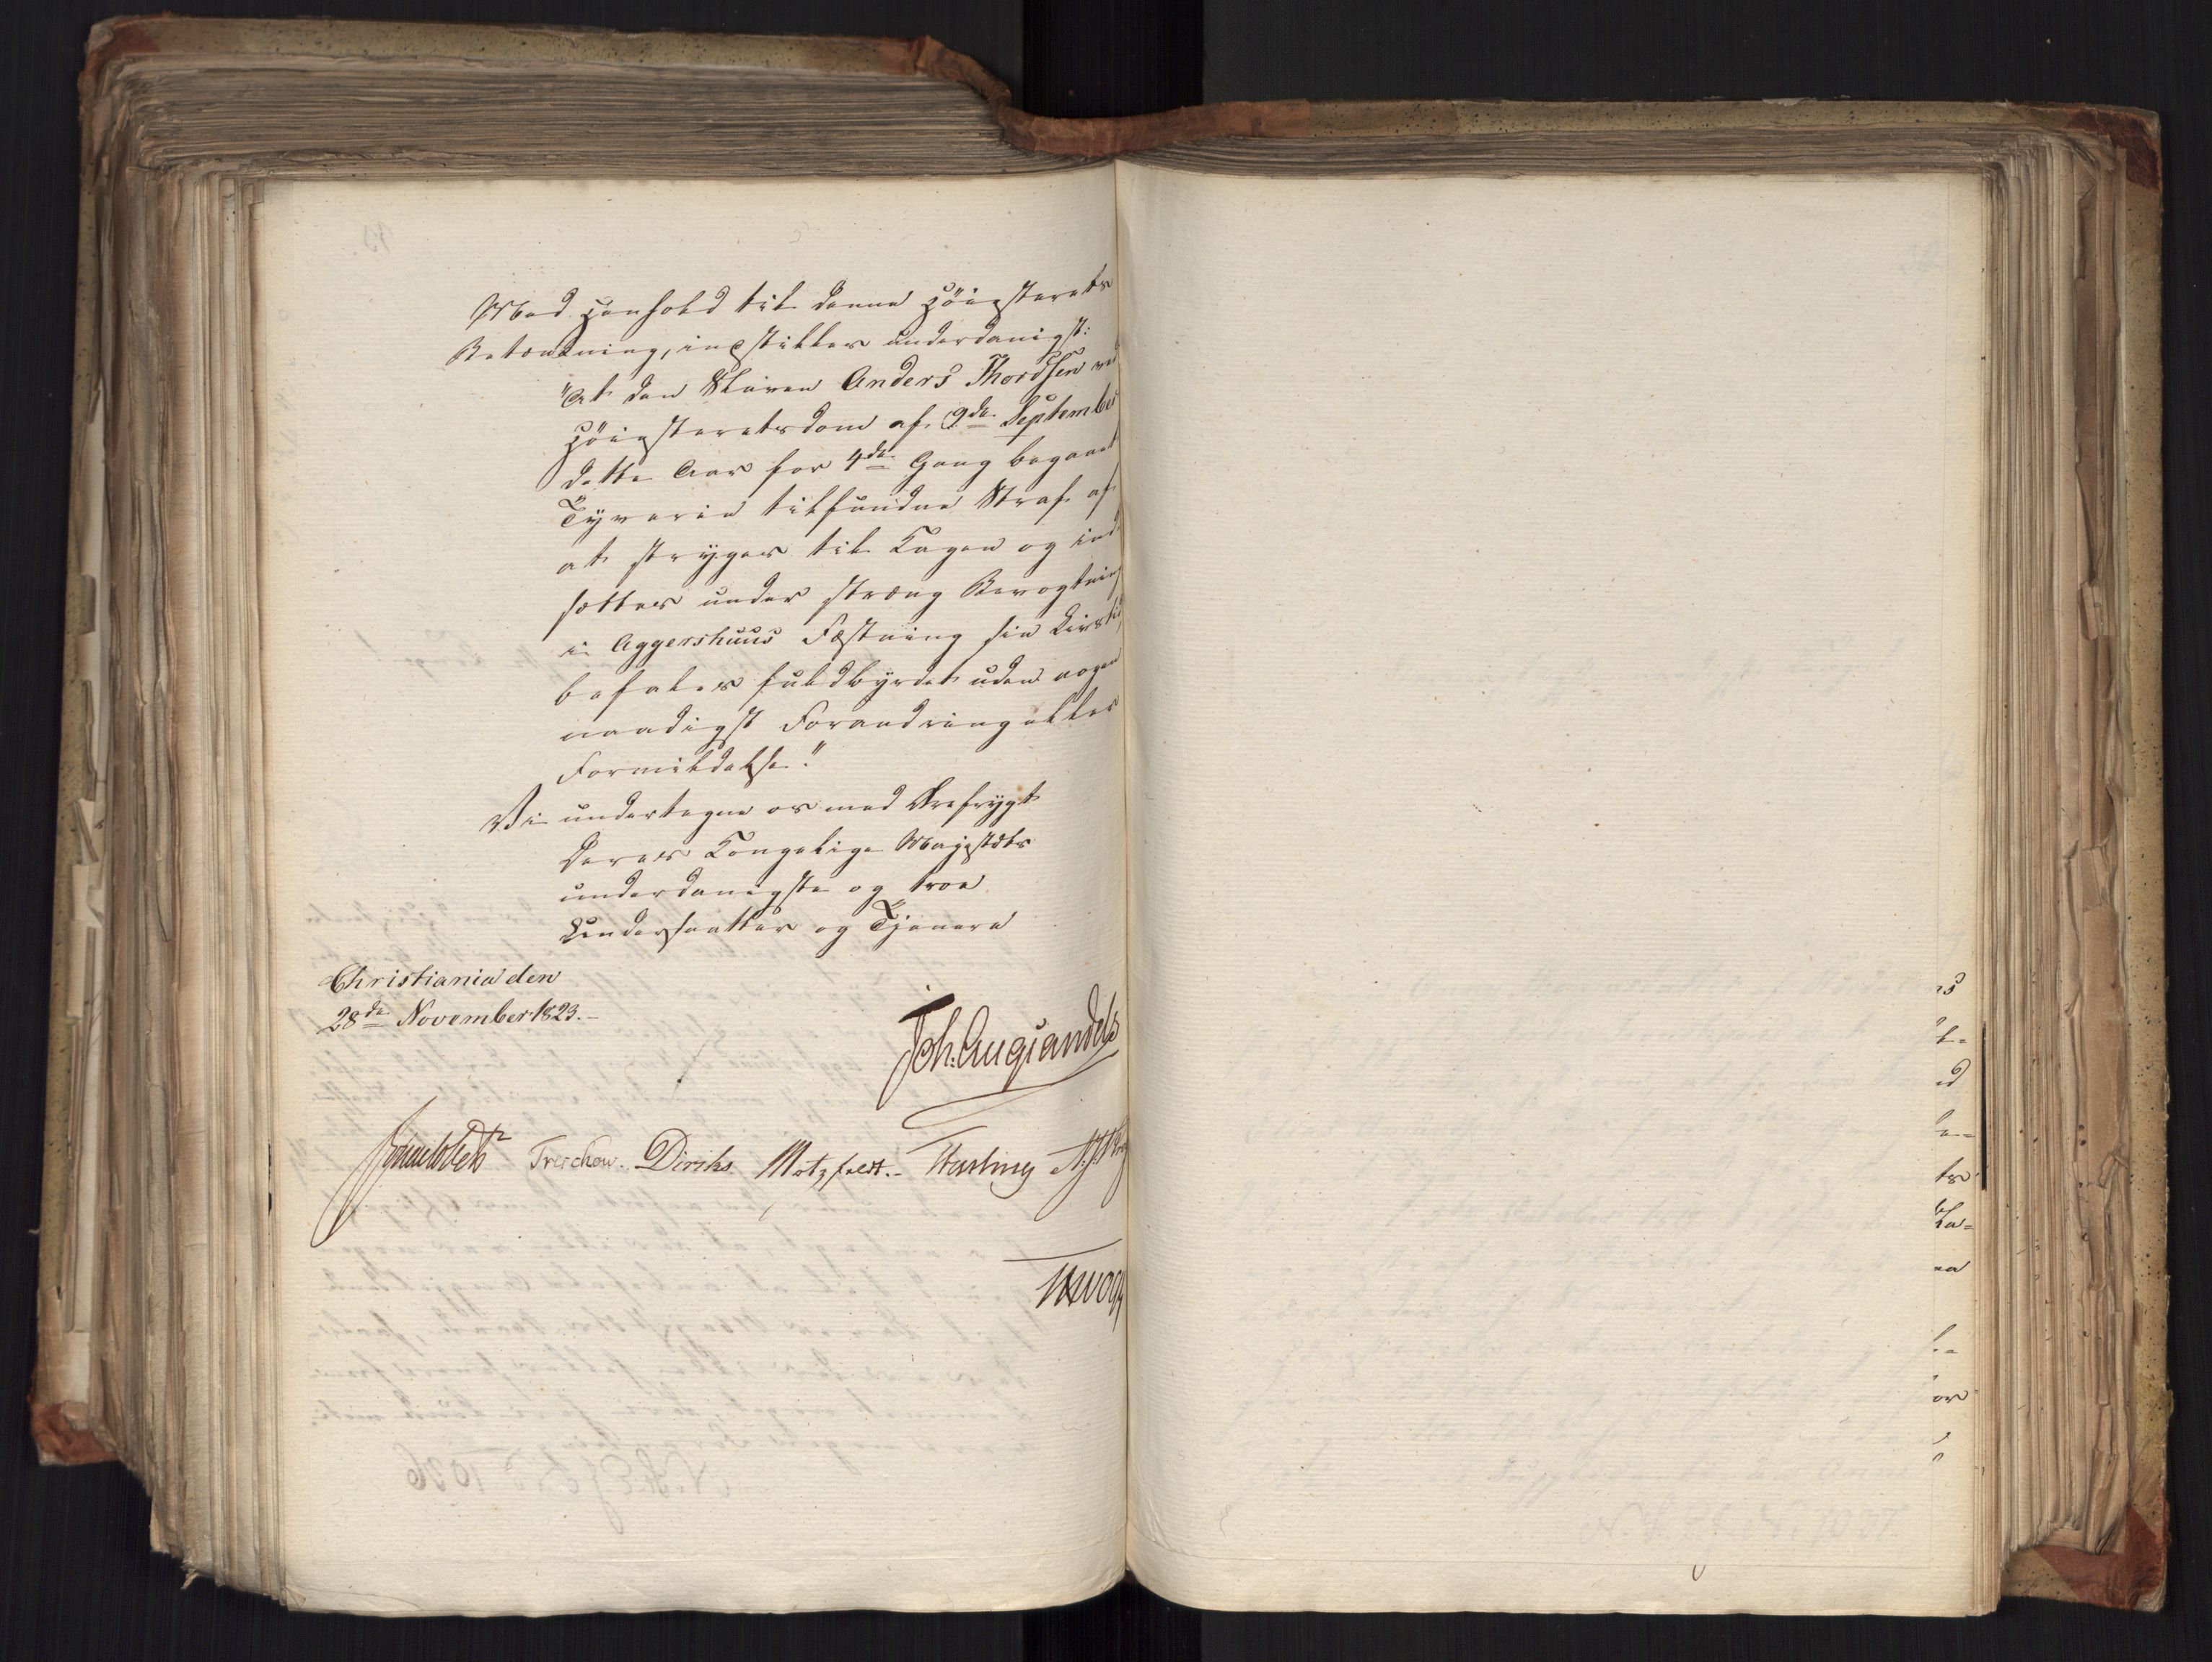 Med Henhold til denne Höiesterets
Betænkning, indstilles underdanigst:
"At den Slaven Anders Thordsen ved
Höiesteretsdom af 9de September
dette Aar for 4de Gang begaaet
Tyverie tilfundne Straf af
at stryges til Kagen og ind-
sættes under streng Bevogtning
i Aggershuus Fæstning sin Livstid,
befales fuldbyrdet uden nogen
naadigst Forandring eller
Formildelse."
Vi undertegne os med Ærefrygt
Deres Kongelige Majestæts
underdanigste og troe
Undersaatter og Tjenere
Christiania den
28de November 1823.-
Joh: Aug: Sandels
Treschow. Diriks. Motzfeldt.-